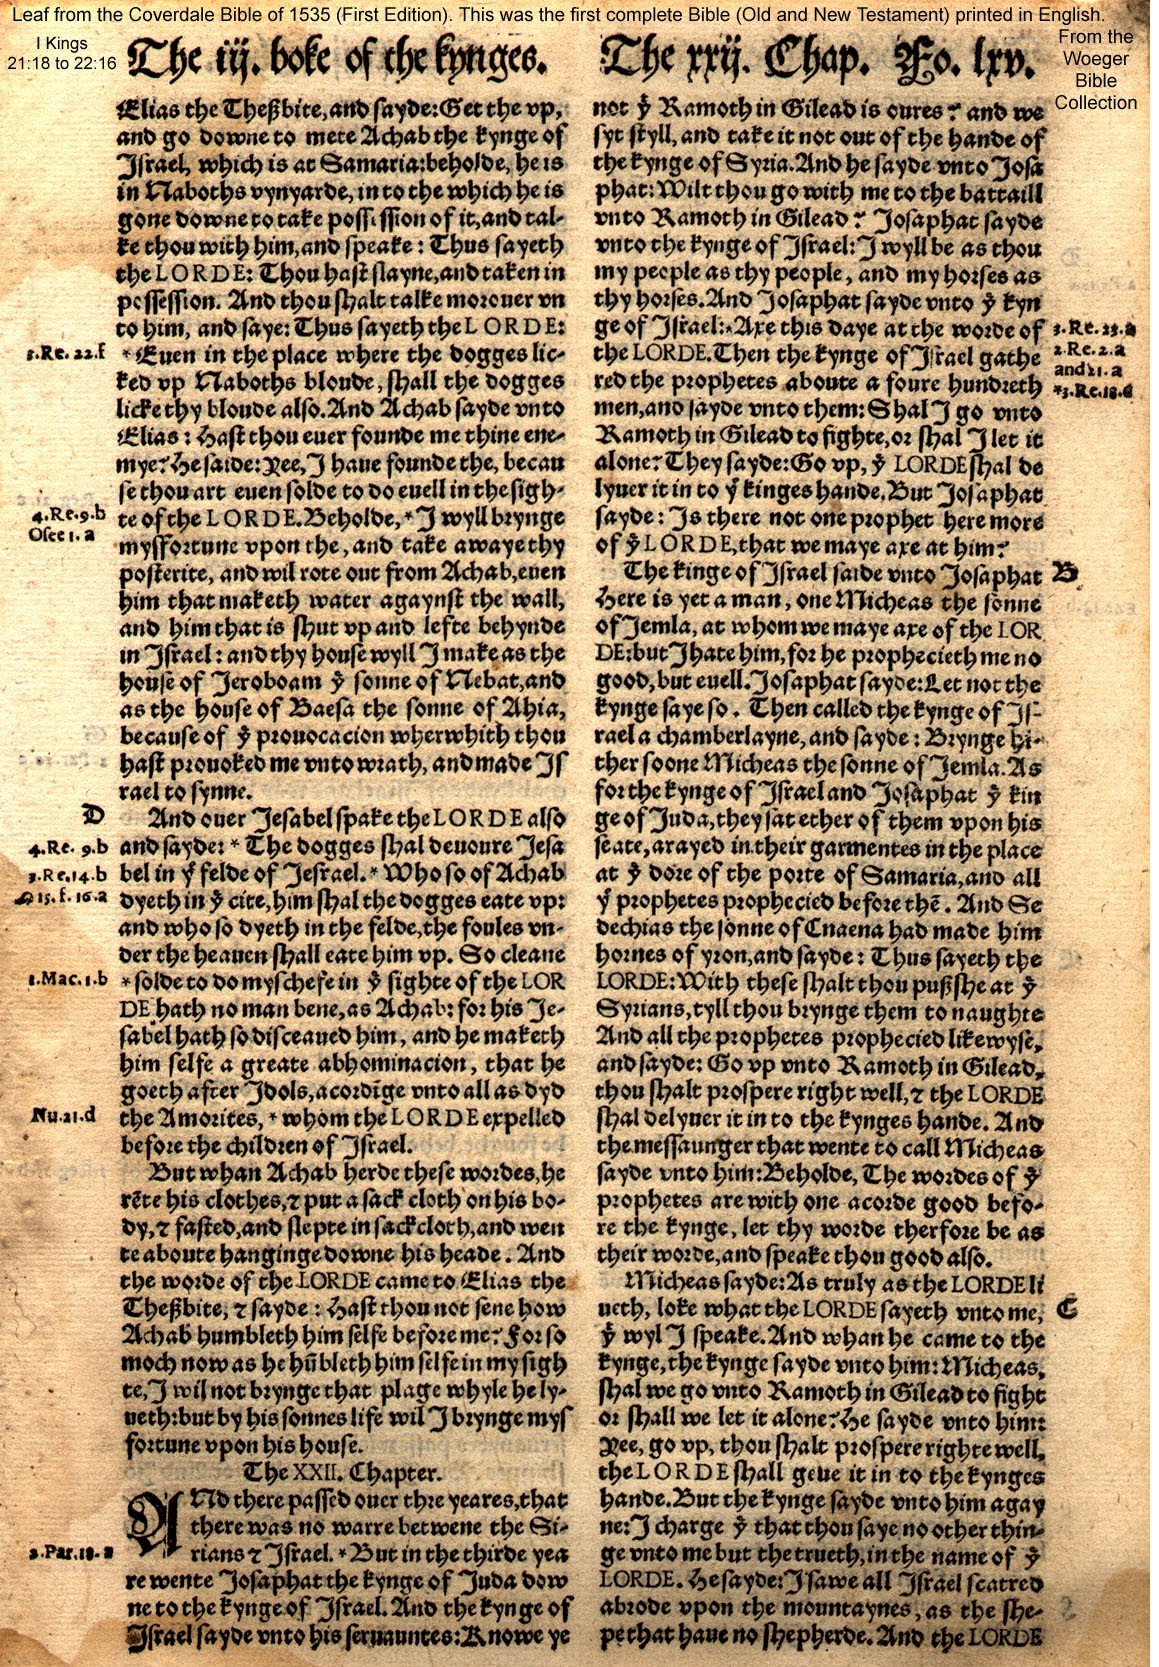 Leaf from the Coverdale Bible of 1535 (First Edition). This was the first complete Bible (Old and New Testament) printed in English.
I Kings
21:18 to 22:16
From the
Woeger
Bible
Collection
The iij. boke of the kynges.
Elias the Theßbite, and sayde: Get the vp,
and go downe to mete Achab the kynge of
Israel, which is at Samaria: beholde, he is
in Naboths vynyarde, in to the which he is
gone downe to take possession of it, and tal-
ke thou with him, and speake: Thus sayeth
the LORDE: Thou hast slayne, and taken in
possession. And thou shalt talke morouer vn
to him, and saye: Thus sayeth the LORDE:
3.Re. 22.f
*Euen in the place where the dogges lic-
ked vp Naboths bloude, shall the dogges
licke thy bloude also. And Achab sayde vnto
Elias: Hast thou euer founde me thine ene-
mye? He saide: Yee, I haue founde the, becau
se thou art euen solde to do euell in the sigh-
4.Re.9.b
Osee 1. a
te of the LORDE. Beholde, *I wyll brynge
myßfortune vpon the, and take awaye thy
posterite, and wil rote out from Achab, euen
him that maketh water agaynst the wall,
and him that is shut vp and lefte behynde
in Israel: and thy house wyll I make as the
house of Jeroboam ẏ sonne of Nebat, and
as the house of Baesa the sonne of Ahia,
because of ẏ prouocacion wherwhith thou
hast prouoked me vnto wrath, and made Is
rael to synne.
D
And ouer Jesabel spake the LORDE also
4.Re. 9.b
and sayde: *The dogges shal deuoure Jesa
3.Re.14.b
bel in ẏ felde of Jesrael. *Who so of Achab
15. f. 16.a
dyeth in ẏ cite, him shal the dogges eate vp:
and who so dyeth in the felde, the foules vn-
der the heauen shall eate him vp. So cleane
1.Mac.1.b
*solde to do myschefe in ẏ sighte of the LOR
DE hath no man bene, as Achab: for his Je-
sabel hath so disceaued him, and he maketh
him selfe a greate abhominacion, that he
goeth after Idols, acordīge vnto all as dyd
Nu.21.d
the Amorites, *whom the LORDE expelled
before the children of Israel.
But whan Achab herde these wordes, he
rēte his clothes, ⁊ put a sack cloth on his bo-
dy, ⁊ fasted, and slepte in sack cloth, and wen
te aboute hanginge downe his heade. And
the worde of the LORDE came to Elias the
Theßbite, ⁊ sayde: Hast thou not sene how
Achab humbleth him selfe before me? For so
moch now as he hūbleth him selfe in my sigh
te, I wil not brynge that plage whyle he ly-
ueth: but by his sonnes life wil I brynge mys
fortune vpon his house.
The XXII. Chapter.
ANd there passed ouer thre yeares, that
there was no warre betwene the Si-
2.Par.18. a
rians ⁊ Israel. *But in the thirde yea
re wente Josaphat the kynge of Juda dow
ne to the kynge of Israel. And the kynge of
Israel sayde vnto his seruauntes: Knowe ye
The xxij. Chap. Fo. lxv.
not ẏ Ramoth in Gilead is oures? and we
syt styll, and take it not out of the hande of
the kynge of Syria. And he sayde vnto Josa
phat: Wilt thou go with me to the battaill
vnto Ramoth in Gilead? Josaphat sayde
vnto the kynge of Israel: I wyll be as thou
my people as thy people, and my horses as
thy horses. And Josaphat sayde vnto ẏ kyn
ge of Israel: *Axe this daye at the worde of
the LORDE. Then the kynge of Israel gathe
2.Re.2.a
and 21. a
red the prophetes aboute a foure hundreth
*3.Re.18.d
men, and sayde vnto them: Shal I go vnto
Ramoth in Gilead to fighte, or shal I let it
alone? They sayde: Go vp, ẏ LORDE shal de
lyuer it in to ẏ kinges hande. But Josaphat
sayde: Is there not one prophet here more
of ẏ LORDE, that we maye axe at him?
The kinge of Israel saide vnto Josaphat
B
Here is yet a man, one Micheas the sonne
of Jemla, at whom we maye axe of the LOR
DE: but I hate him, for he prophecieth me no
good, but euell. Josaphat sayde: Let not the
kynge saye so. Then called the kynge of Is-
rael a chamberlayne, and sayde: Brynge hi-
ther soone Micheas the sonne of Jemla. As
for the kynge of Israel and Josaphat ẏ kin
ge of Juda, they sat ether of them vpon his
seate, arayed in their garmentes in the place
at ẏ dore of the porte of Samaria, and all
ẏ prophetes prophecied before thē. And Se
dechias the sonne of Cnaena had made him
hornes of yron, and sayde: Thus sayeth the
LORDE: With these shalt thou pußshe at ẏ
Syrians, tyll thou brynge them to naughte
And all the prophetes prophecied likewyse,
and sayde: Go vp vnto Ramoth in Gilead,
thou shalt prospere right well, ⁊ the LORDE
shal delyuer it in to the kynges hande. And
the messaunger that wente to call Micheas
sayde vnto him: Beholde, The wordes of ẏ
prophetes are with one acorde good befo-
re the kynge, let thy worde therfore be as
their worde, and speake thou good also.
Micheas sayde: As truly as the LORDE li
ueth, loke what the LORDE sayeth vnto me,
C
ẏ wyl I speake. And whan he came to the
kynge, the kynge sayde vnto him: Micheas,
shal we go vnto Ramoth in Gilead to fight
or shall we let it alone? He sayde vnto him:
Yee, go vp, thou shalt prospere righte well,
the LORDE shall geue it in to the kynges
hande. But the kynge sayde vnto him agay
ne: I charge ẏ that thou saye no other thin-
ge vnto me but the trueth, in the name of ẏ
LORDE. He sayde: I sawe all Israel scatred
abrode vpon the mountaynes, as the she-
pe that haue no shepherde. And the LORDE